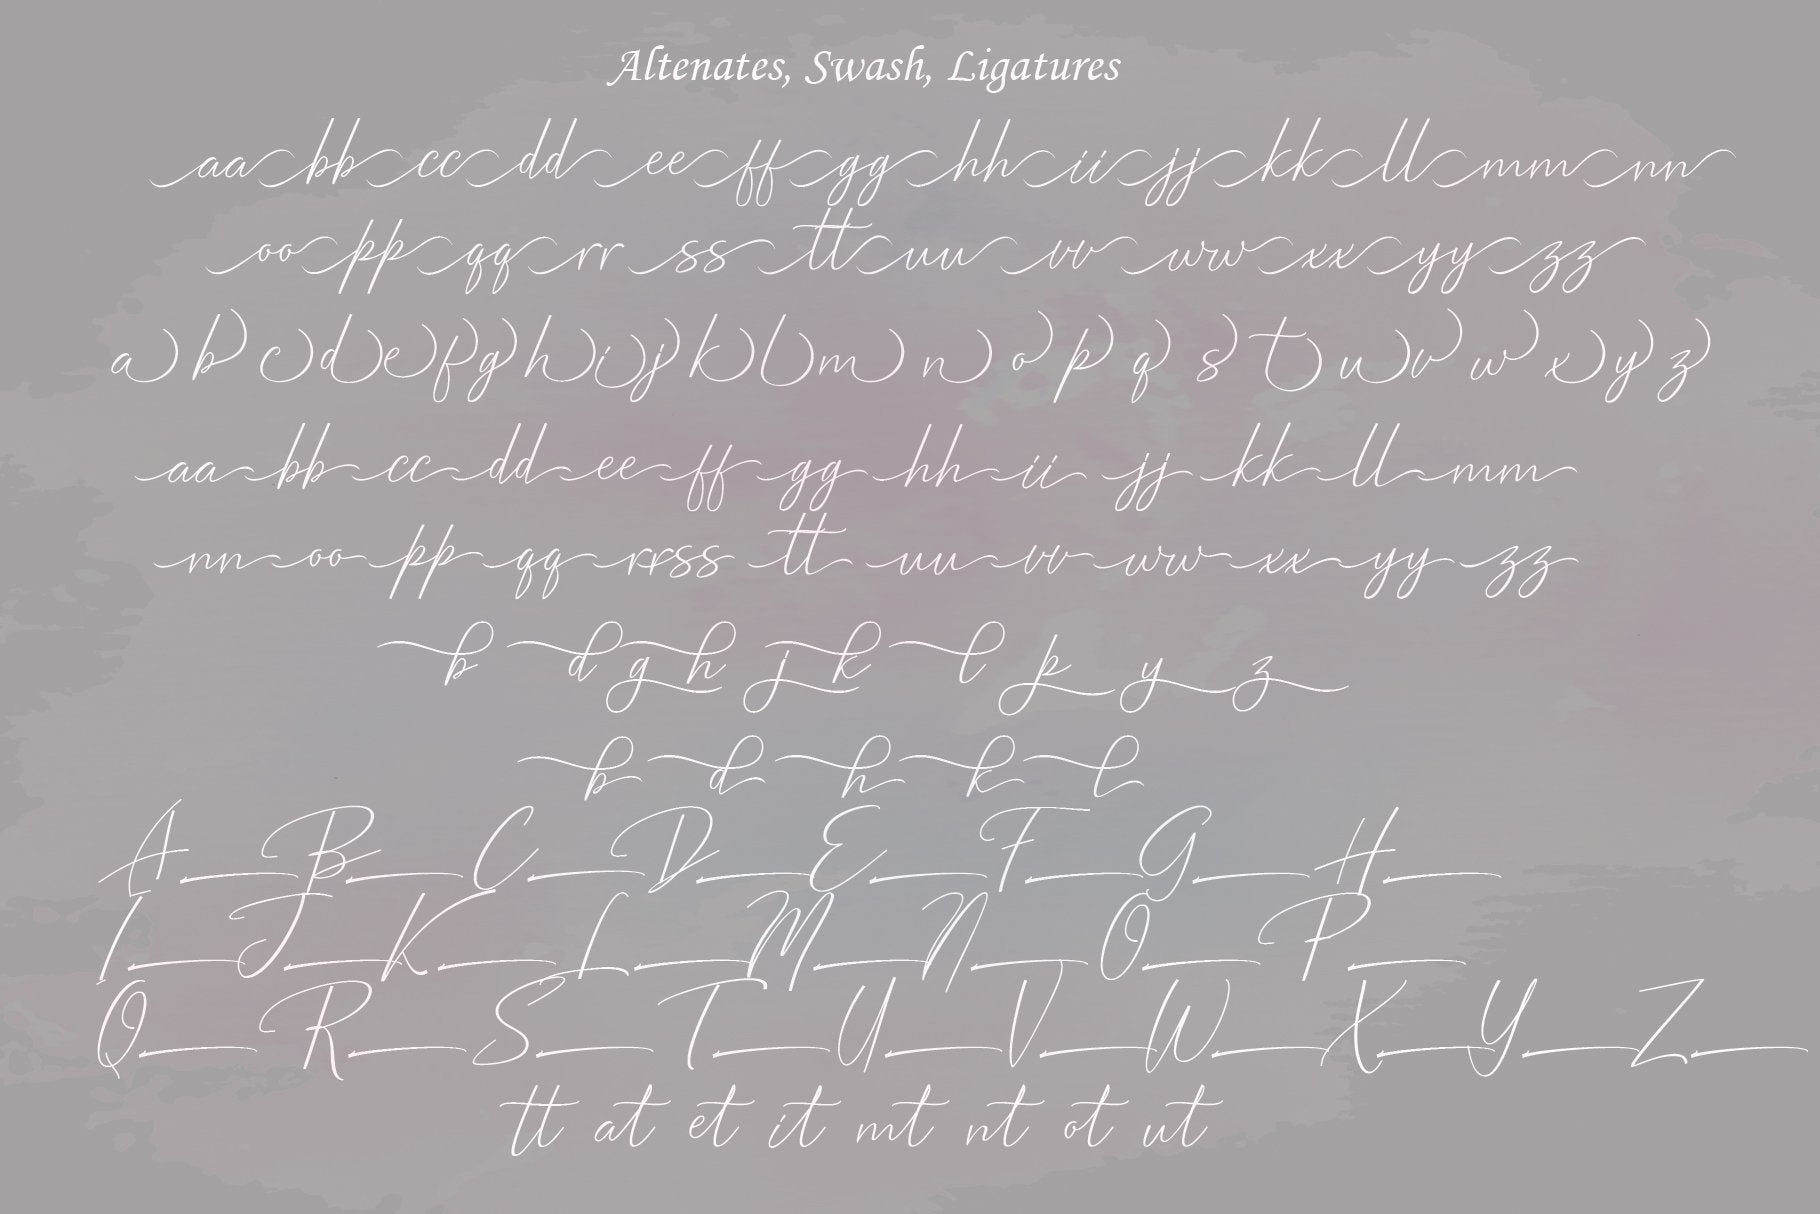 Altenates, Swash, Ligatures
aa bb cc dd ee ff gg hh ii jj kk ll mm nn
oo pp qq rr ss tt uu vv ww xx yy zz
a b c d e f g h i j k l m n o p q s t u v w x y z
aa bb cc dd ee ff gg hh ii jj kk ll mm
nn oo pp qq rr ss tt uu vv ww xx yy zz
b d g h j k l p y z
b d h k l
A B C D E F G H
I J K L M N O P
Q R S T U V W X Y Z
tt at et it mt nt ot ut